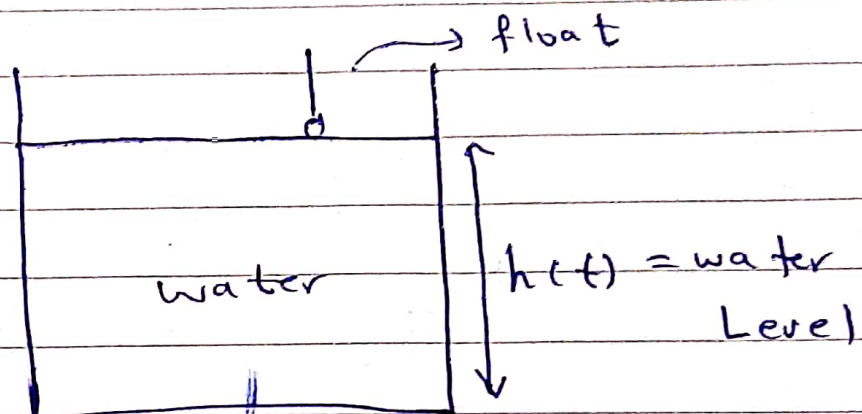 float
water
h(t) = water
Level